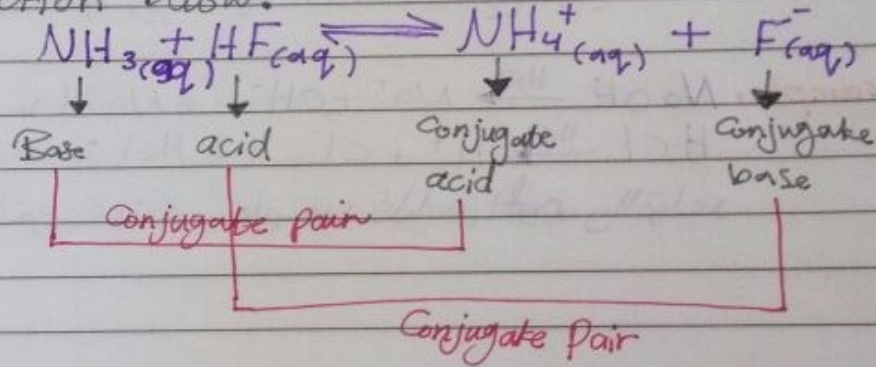 NH₃(aq) + HF(aq) ⇌ NH₄⁺(aq) + F⁻(aq)
Base acid Conjugate acid Conjugate base
Conjugate pair
Conjugate Pair